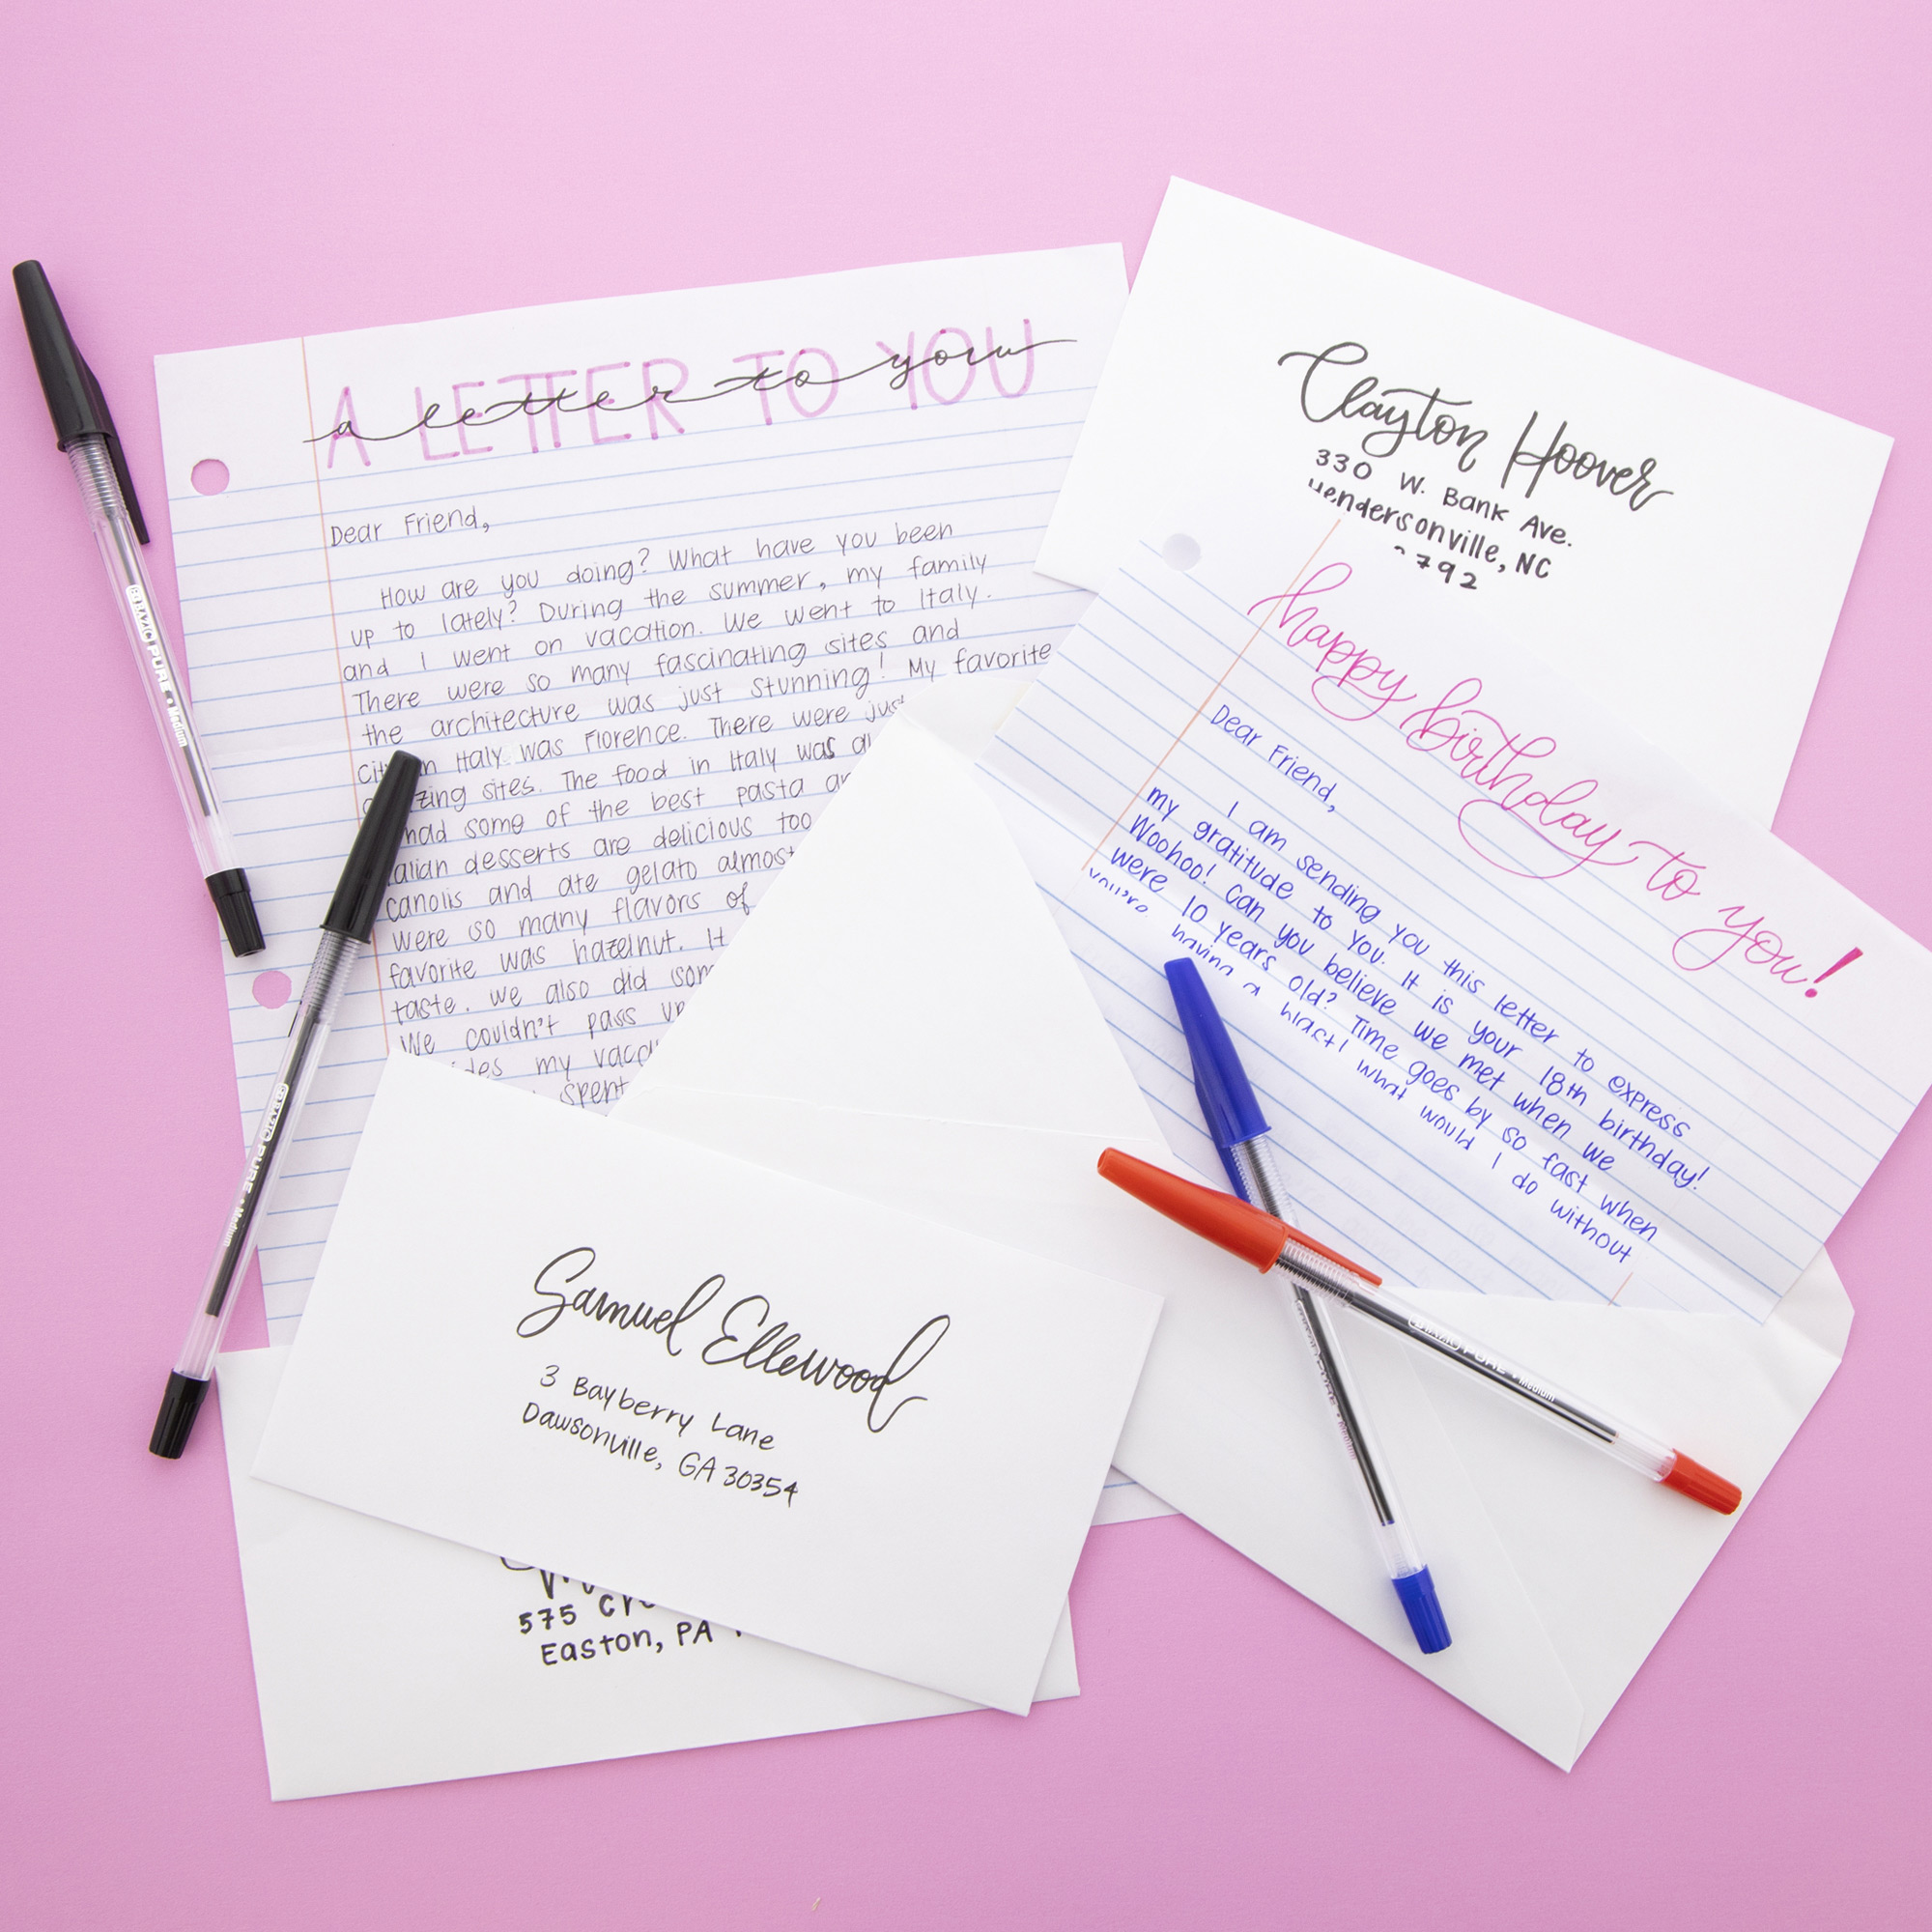 A LETTER TO YOU
a letter to you
Dear Friend,
How are you doing? What have you been
up to lately? During the summer, my family
and I went on vacation. We went to Italy.
There were so many fascinating sites and
the architecture was just stunning! My favorite
in Italy was Florence. There were just
sites. The food in Italy was
had some of the best pasta
desserts are delicious too
canolis and ate gelato almost
were so many flavors of
favorite was hazelnut. It
taste. We also did
We couldn't pass up
my
spent
Clayton Hoover
330 W. Bank Ave.
Hendersonville, NC
792
happy birthday to you!
Dear Friend,
I am sending you this letter to express
my gratitude to you. It is your 18th birthday!
Woohoo! Can you believe we met when we
were 10 years old? Time goes by so fast when
you're having a blast! What would I do without
Samuel Ellewood
3 Bayberry Lane
Dawsonville, GA 30354
575
Easton, PA
BAZIC PURE • Medium
BAZIC PURE • Medium
BAZIC PURE • Medium
PURE • Medium